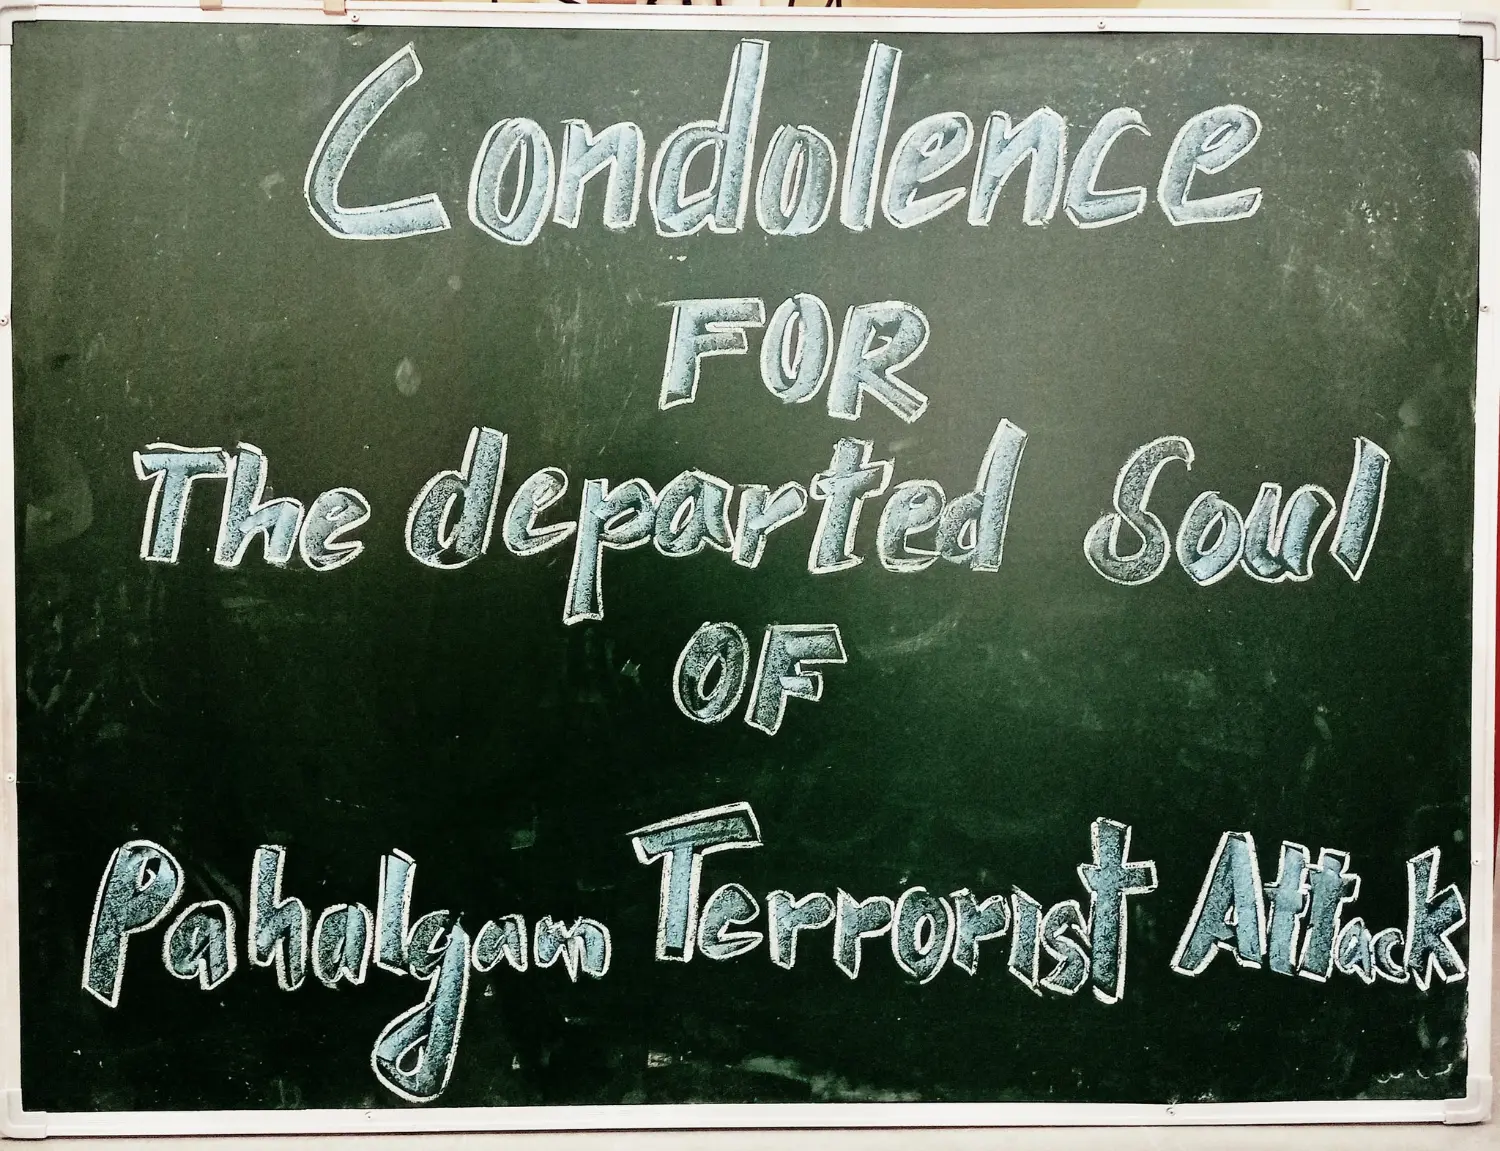 Condolence
FOR
The departed Soul
OF
Pahalgam Terrorist Attack